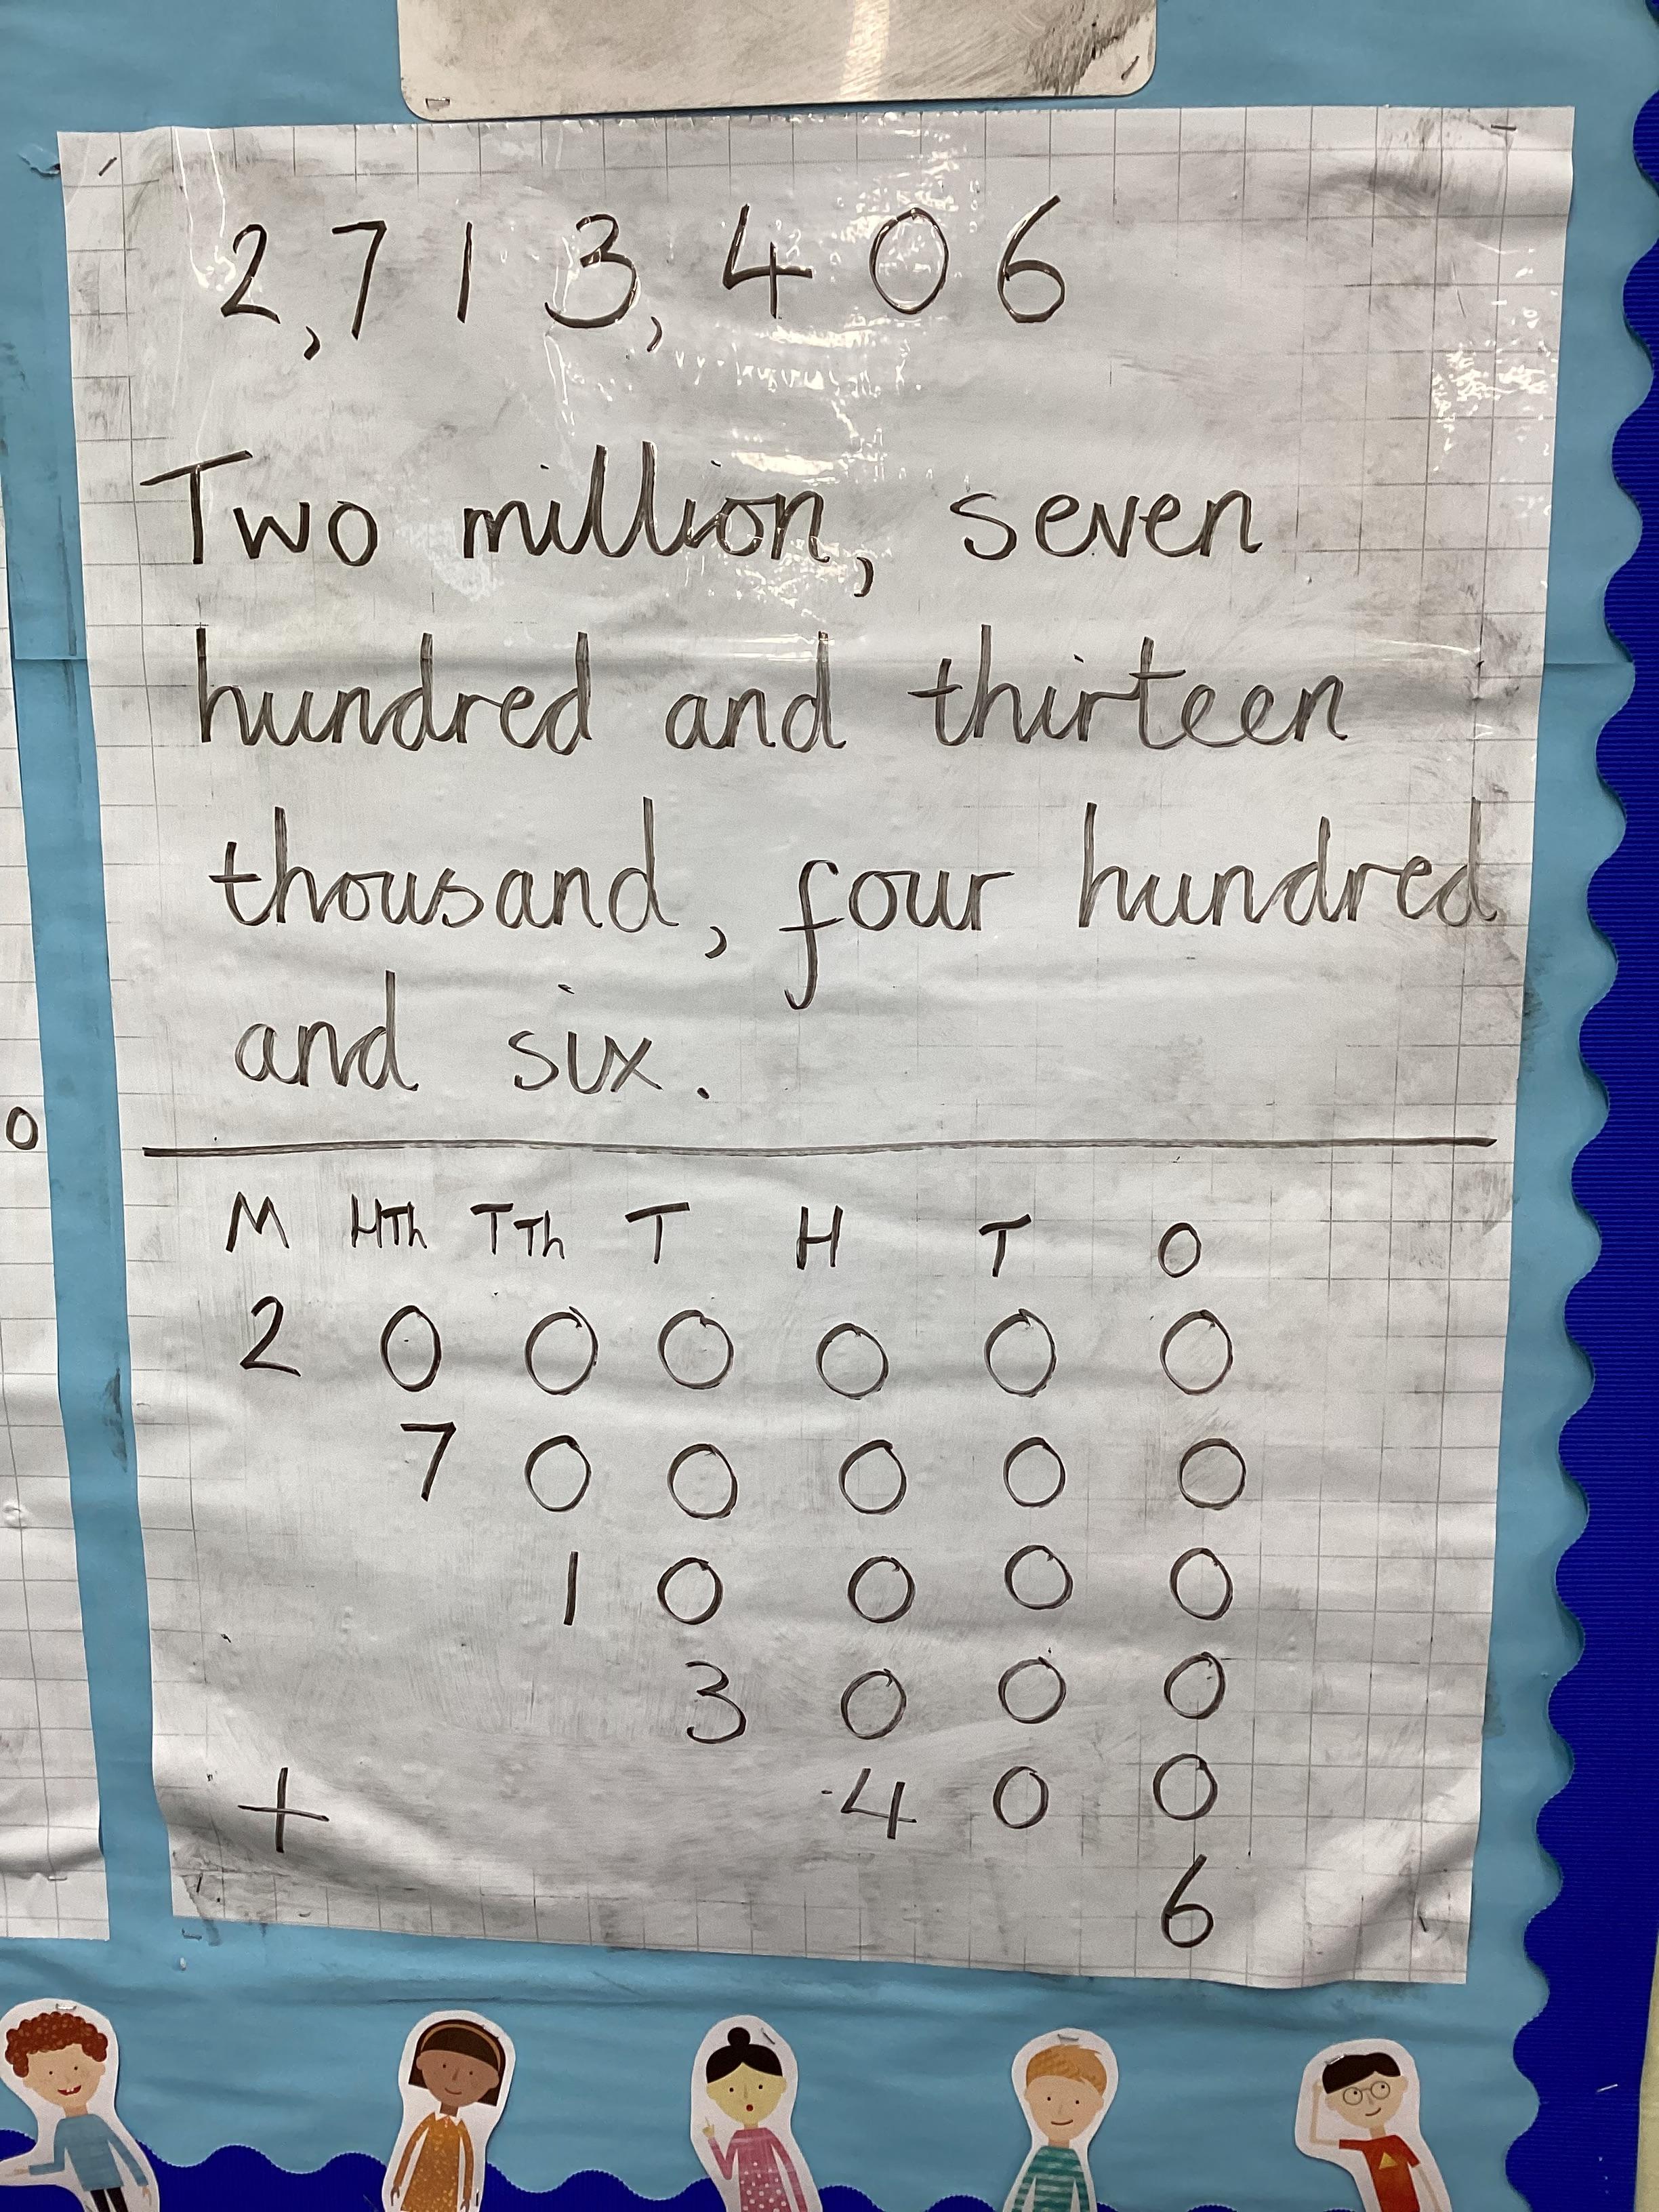 2,713,406
Two million, seven
hundred and thirteen
thousand, four hundred
and six.
0
M HTh TTh T H T O
2 0 0 0 0 0 0
7 0 0 0 0 0
1 0 0 0 0
3 0 0 0
+ 4 0 0
6